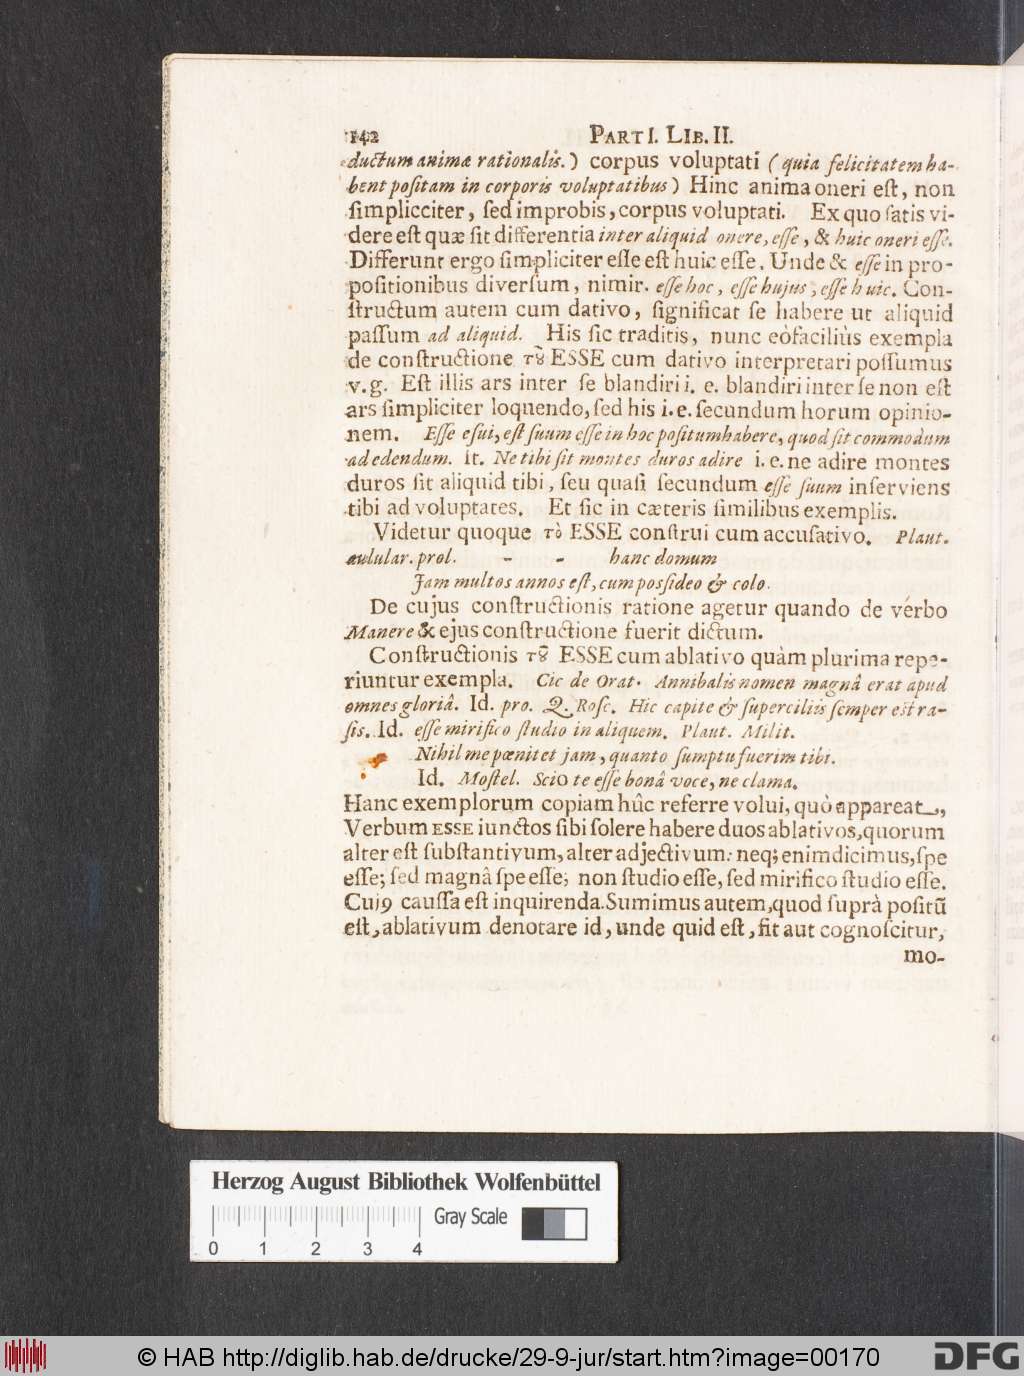 142 PARTI. LIB. II.
ductum animæ rationalis.) corpus voluptati (quia felicitatem ha-
bent positam in corporis voluptatibus) Hinc anima oneri est, non
simplicciter, sed improbis, corpus voluptati. Ex quo satis vi-
dere est quæ sit differentia inter aliquid onere, esse, & huic oneri esse.
Differunt ergo simpliciter esse est huic esse. Unde & esse in pro-
positionibus diversum, nimir. esse hoc, esse hujus, esse huic. Con-
structum autem cum dativo, significat se habere ut aliquid
passum ad aliquid. His sic traditis, nunc eò faciliùs exempla
de constructione τȣ̃ ESSE cum dativo interpretari possumus
v.g. Est illis ars inter se blandiri i. e. blandiri inter se non est
ars simpliciter loquendo, sed his i. e. secundum horum opinio-
nem. Esse esui, est suum esse in hoc positum habere, quod sit commodum
ad edendum. it. Ne tibi sit montes duros adire i. e. ne adire montes
duros sit aliquid tibi, seu quasi secundum esse suum inserviens
tibi ad voluptates. Et sic in cæteris similibus exemplis.
Videtur quoque τὸ ESSE construi cum accusativo. Plaut.
aulular. prol. - - hanc domum
Jam multos annos est, cum possideo & colo.
De cujus constructionis ratione agetur quando de verbo
Manere & ejus constructione fuerit dictum.
Constructionis τȣ̃ ESSE cum ablativo quàm plurima repe-
riuntur exempla. Cic de Orat. Annibalis nomen magnâ erat apud
omnes gloriâ. Id. pro. Q. Rosc. Hic capite & superciliis semper est ra-
sis. Id. esse mirifico studio in aliquem. Plaut. Milit.
Nihil me pœnitet jam, quanto sumptu fuerim tibi.
Id. Mostel. Scio te esse bonâ voce, ne clama.
Hanc exemplorum copiam hûc referre volui, quò appareat,
Verbum ESSE iunctos sibi solere habere duos ablativos, quorum
alter est substantivum, alter adjectivum: neq; enim dicimus, spe
esse; sed magnâ spe esse; non studio esse, sed mirifico studio esse.
Cuiꝰ caussa est inquirenda. Sumimus autem, quod suprà positũ
est, ablativum denotare id, unde quid est, fit aut cognoscitur,
mo-
Herzog August Bibliothek Wolfenbüttel
0 1 2 3 4 Gray Scale
© HAB http://diglib.hab.de/drucke/29-9-jur/start.htm?image=00170 DFG